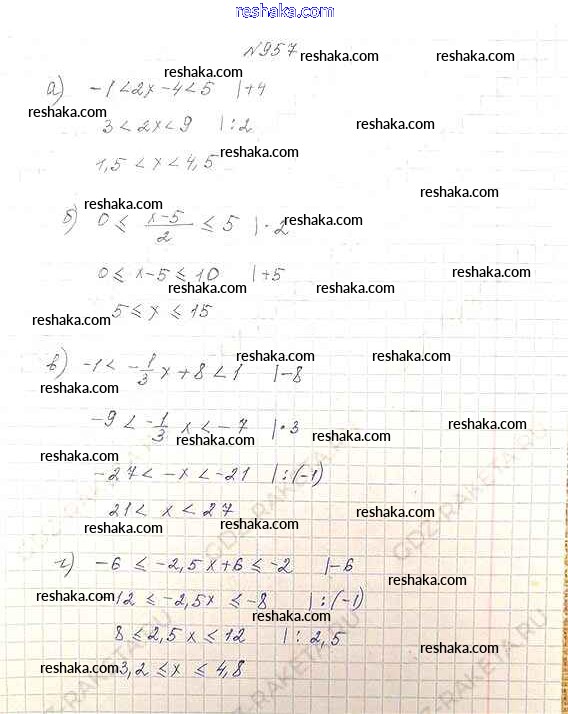 reshaka.com
№957
reshaka.com reshaka.com
reshaka.com
а) -1<2x-4<5 |+4
reshaka.com
3<2x<9 |:2 reshaka.com
1,5<x<4,5 reshaka.com
reshaka.com
reshaka.com
б) 0≤ x-5/2 ≤5 |·2 reshaka.com
0≤x-5≤10 |+5 reshaka.com
reshaka.com reshaka.com
5≤x≤15
reshaka.com
reshaka.com reshaka.com
в) -1<-1/3x+8<1 |-8
reshaka.com
-9<-1/3x<-7 |·3 reshaka.com
reshaka.com reshaka.com
reshaka.com
-27<-x<-21 |:(-1)
21<x<27 reshaka.com
reshaka.com reshaka.com
г) -6≤-2,5x+6≤-2 |-6
reshaka.com
reshaka.com
12≤-2,5x≤-8 |:(-1)
8≤2,5x≤12 |:2,5
reshaka.com
reshaka.com 3,2≤x≤4,8
GDZ-RAKETA.RU
GDZ-RAKETA.RU
GDZ-RAKETA.RU
GDZ-RAKETA.RU